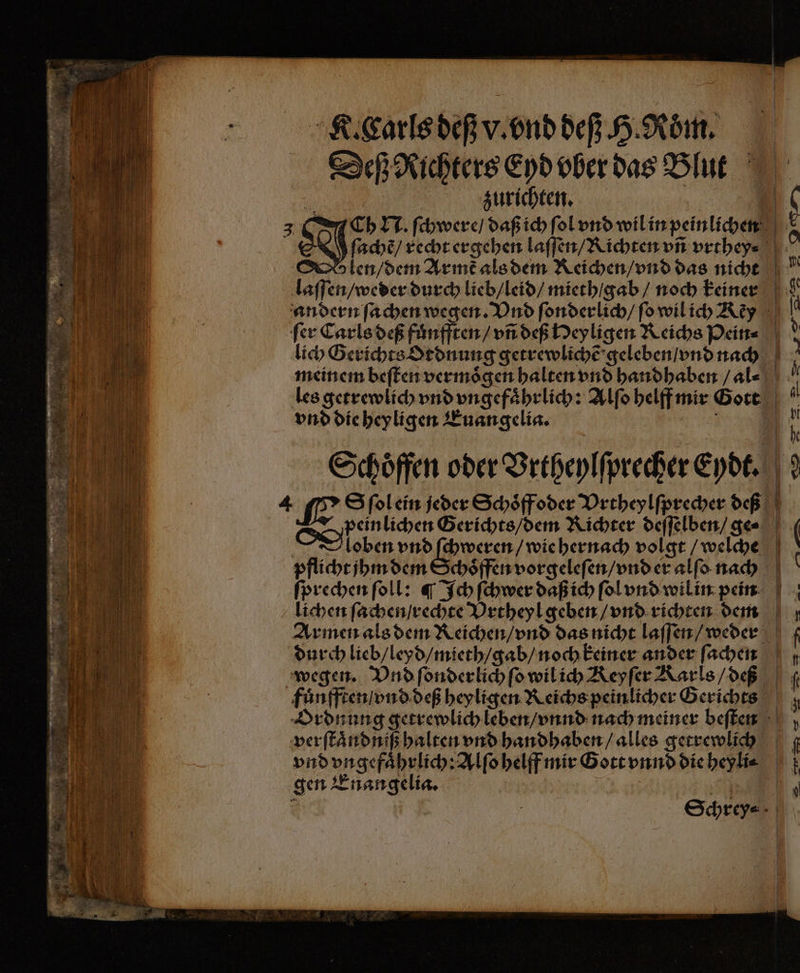 K. Carls deß v. vnd deß H. Röm.
Deß Richters Eyd vber das Blut
zurichten.
3 ICh N. ſchwere/ daß ich ſol vnd wil in peinlichen
ſachẽ/ recht ergehen laſſen/ Richten vñ vrthey⸗
len/ dem Armẽ als dem Reichen/ vnd das nicht
laſſen/ weder durch lieb/ leid/ mieth/ gab/ noch keiner
andern ſachen wegen. Vnd ſonderlich/ ſo wil ich Kẽy
ſer Carls deß fuͤnfften/ vñ deß Heyligen Reichs Pein⸗
lich Gerichts Ordnung getrewlichẽ geleben/ vnd nach
meinem beſten vermoͤgen halten vnd handhaben/ al⸗
les getrewlich vnd vngefaͤhrlich: Alſo helff mir Gott
vnd die heyligen Euangelia.
Schoͤffen oder Vrtheylſprecher Eydt.
4 ES ſol ein jeder Schoͤff oder Vrtheylſprecher deß
peinlichen Gerichts/ dem Richter deſſelben/ ge⸗
loben vnd ſchweren/ wie hernach volgt/ welche
pflicht jhm dem Schoͤffen vorgeleſen/ vnd er alſo nach
ſprechen ſoll: ¶ Ich ſchwer daß ich ſol vnd wil in pein
lichen ſachen/ rechte Vrtheyl geben/ vnd richten dem
Armen als dem Reichen/ vnd das nicht laſſen/ weder
durch lieb/ leyd/ mieth/ gab/ noch keiner ander ſachen
wegen. Vnd ſonderlich ſo wil ich Keyſer Karls/ deß
fuͤnfften/ vnd deß heyligen Reichs peinlicher Gerichts
Ordnung getrewlich leben/ vnnd nach meiner beſten
verſtaͤndniß halten vnd handhaben/ alles getrewlich
vnd vngefaͤhrlich: Alſo helff mir Gott vnnd die heyli⸗
gen Enangelia.
Schrey⸗